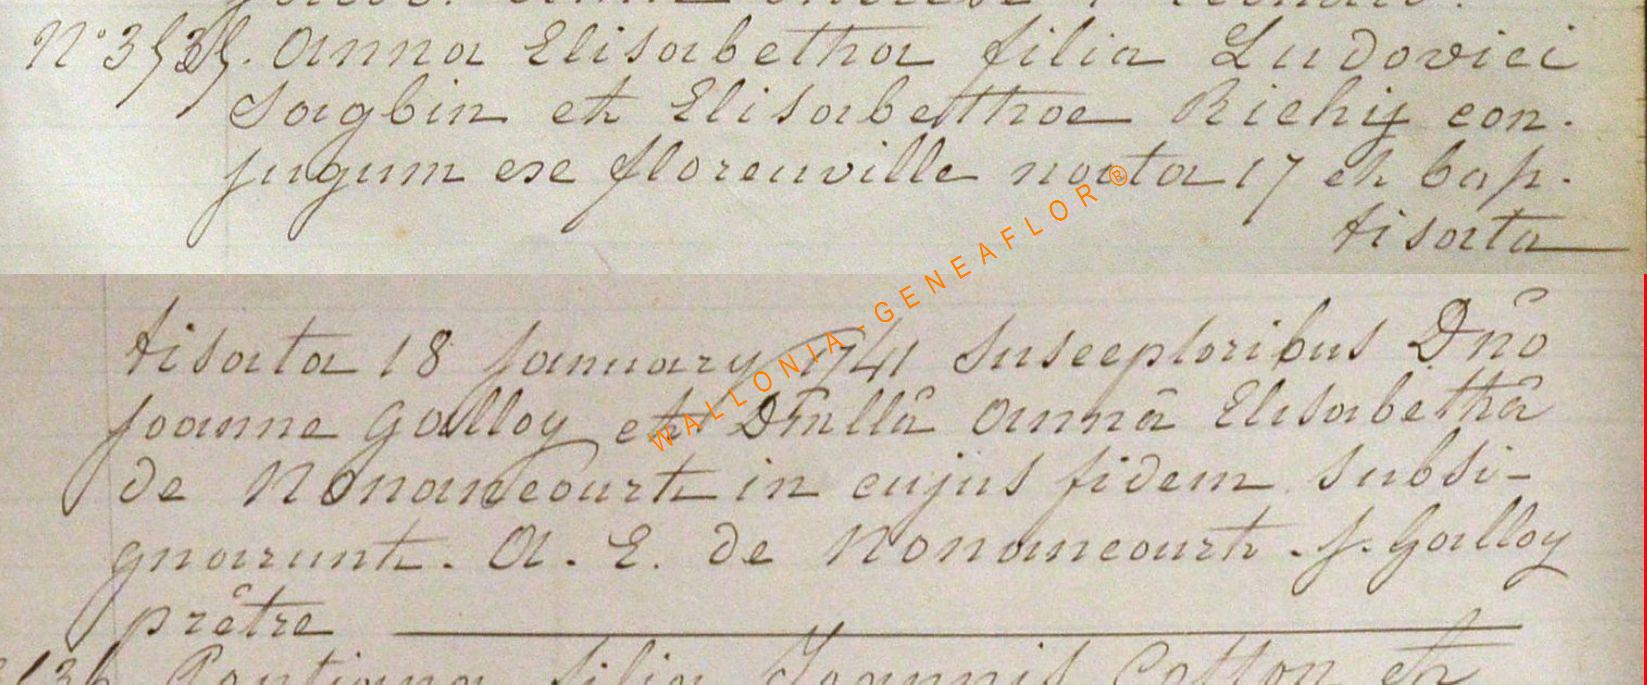 N° 35 35. Anna Elisabetha filia Ludovici
Sagbin et Elisabethae Richy con-
jugum ex florenville nata 17 et bap-
tisata
tisata 18 january 1741 Susceptoribus Dno
joanne Galloy et Dmllâ Annâ Elisabethâ
de Nonancourt in cujus fidem subsi-
gnarunt. A. E. de Nonancourt. J. Galloy
prêtre
Pontiana filia Joannis Cotton et
WALLONIA-GENEAFLOR®